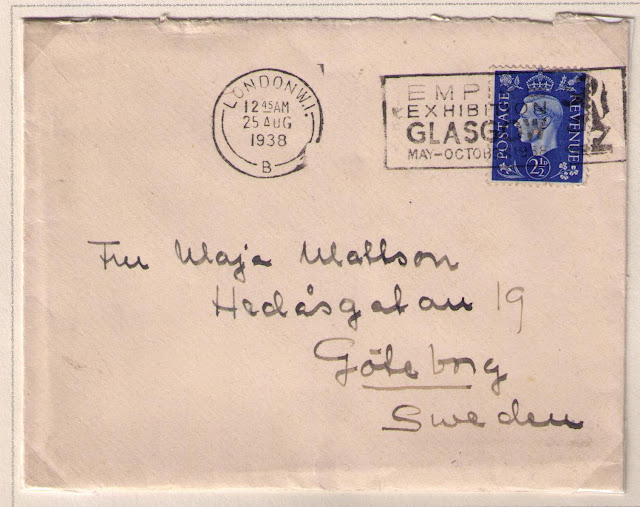 LONDON.W.1.
12 45AM
25 AUG
1938
B
EMPI
EXHIBITION
GLASGOW
MAY-OCTOB
POSTAGE
REVENUE
2½
Fru Maja Mattson
Hedåsgatan 19
Göteborg
Sweden